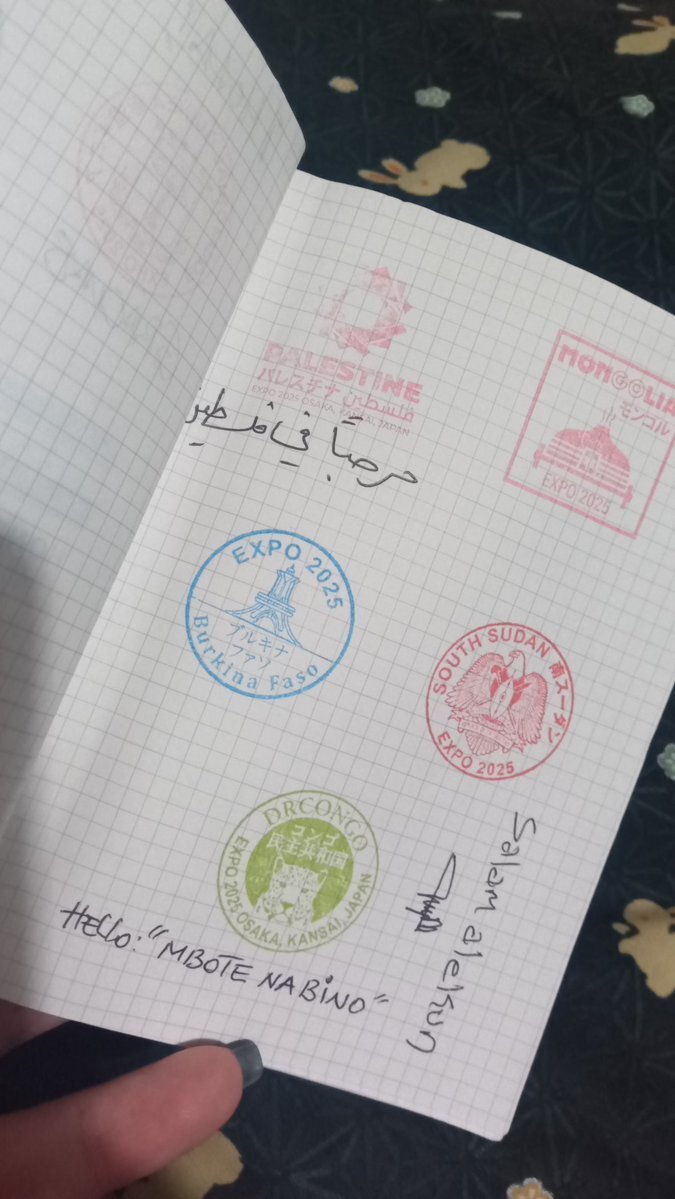 PALESTINE
パレスチナ فلسطين
EXPO 2025 OSAKA, KANSAI, JAPAN
مرحباً في فلسطين
MONGOLIA
モンゴル
EXPO 2025
EXPO 2025
ブルキナ
ファソ
Burkina Faso
SOUTH SUDAN 南スーダン
EXPO 2025
DRCONGO
コンゴ
民主共和国
EXPO 2025 OSAKA, KANSAI, JAPAN
Salam alekun
HELLO: "MBOTE NA BINO"